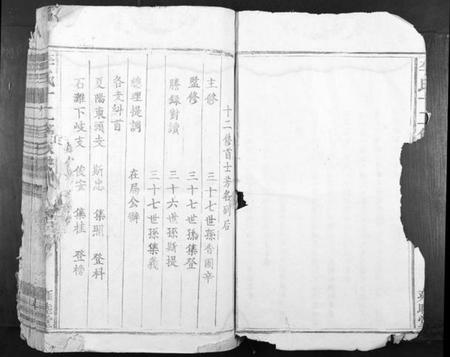 十二修首士芳名列后
主修 三十七世孫香圃辛
監修 三十七世孫集登
謄錄對讀 三十六世孫斯提
總理提調 三十七世孫集義
各支科首 在局公辦
夏陽東頭支 斯忠 集熙 登科
石灘下岐支 俊安 集桂 登榜